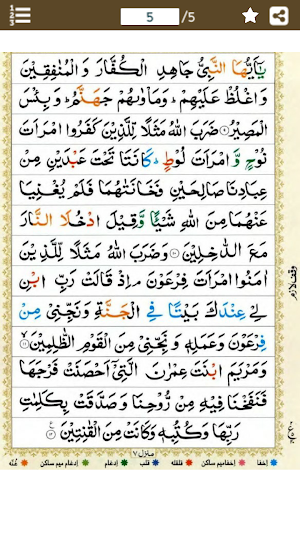 5 /5
يٰۤاَيُّهَا النَّبِيُّ جَاهِدِ الْكُفَّارَ وَالْمُنٰفِقِيْنَ
وَاغْلُظْ عَلَيْهِمْ ؕ وَمَاْوٰىهُمْ جَهَنَّمُ ؕ وَبِئْسَ
الْمَصِيْرُ ۝۹ ضَرَبَ اللّٰهُ مَثَلًا لِّلَّذِيْنَ كَفَرُوا امْرَاَتَ
نُوْحٍ وَّ امْرَاَتَ لُوْطٍ ؕ كَانَتَا تَحْتَ عَبْدَيْنِ مِنْ
عِبَادِنَا صَالِحَيْنِ فَخَانَتٰهُمَا فَلَمْ يُغْنِيَا
عَنْهُمَا مِنَ اللّٰهِ شَيْـًٔا وَّقِيْلَ ادْخُلَا النَّارَ
مَعَ الدّٰخِلِيْنَ ۝۱۰ وَضَرَبَ اللّٰهُ مَثَلًا لِّلَّذِيْنَ
اٰمَنُوا امْرَاَتَ فِرْعَوْنَ ۘ اِذْ قَالَتْ رَبِّ ابْنِ
لِيْ عِنْدَكَ بَيْتًا فِي الْجَنَّةِ وَنَجِّنِيْ مِنْ
فِرْعَوْنَ وَعَمَلِهٖ وَنَجِّنِيْ مِنَ الْقَوْمِ الظّٰلِمِيْنَ ۝۱۱
وَمَرْيَمَ ابْنَتَ عِمْرٰنَ الَّتِيْۤ اَحْصَنَتْ فَرْجَهَا
فَنَفَخْنَا فِيْهِ مِنْ رُّوْحِنَا وَصَدَّقَتْ بِكَلِمٰتِ
رَبِّهَا وَكُتُبِهٖ وَكَانَتْ مِنَ الْقٰنِتِيْنَ ۝۱۲
وقف لازم
منزل ۷
اخفا اخفا میم ساکن قلقلہ قلب ادغام ادغام میم ساکن غُنّہ